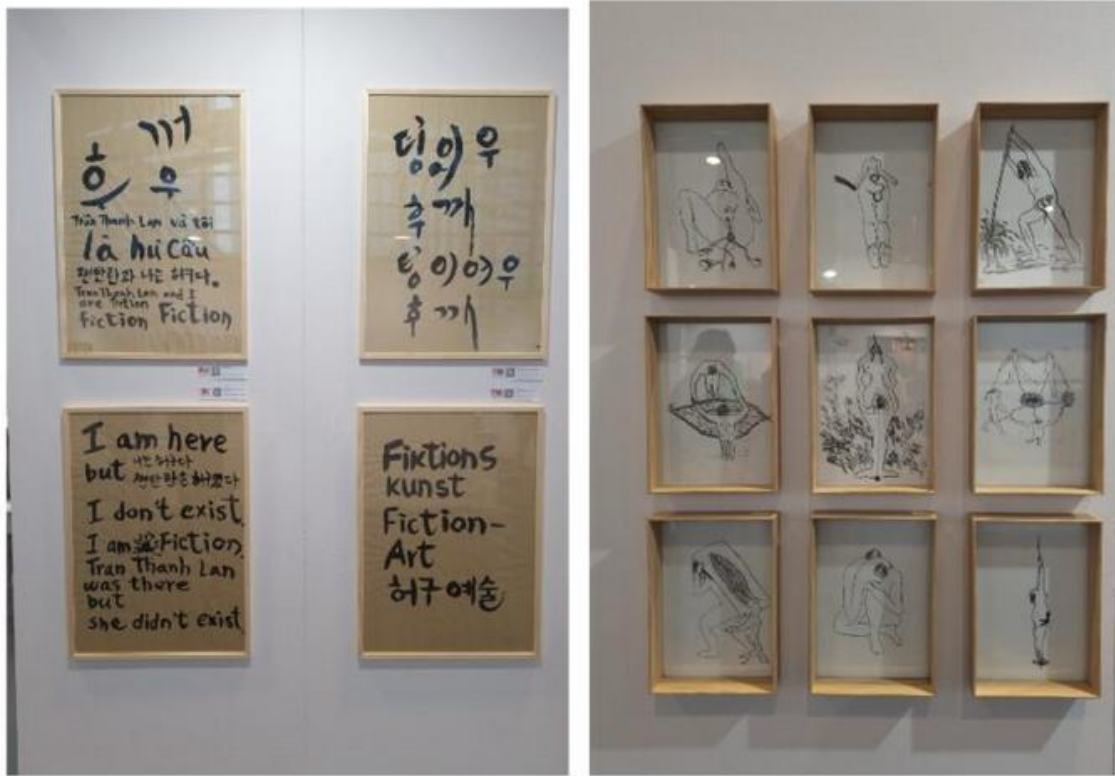 흔 꺼
우
Trần Thanh Lan và tôi
là hư cấu
쩐탄란과 나는 허구다.
Tran Thanh Lan and I
are fiction
fiction Fiction
팅이우
후깨
팅이어우
후깨
I am here
but 나는 허구다
쩐탄란은 허구였다
I don't exist.
I am Fiction.
Tran Thanh Lan
was there
but
she didn't exist.
Fiktions
kunst
Fiction-
Art
허구예술